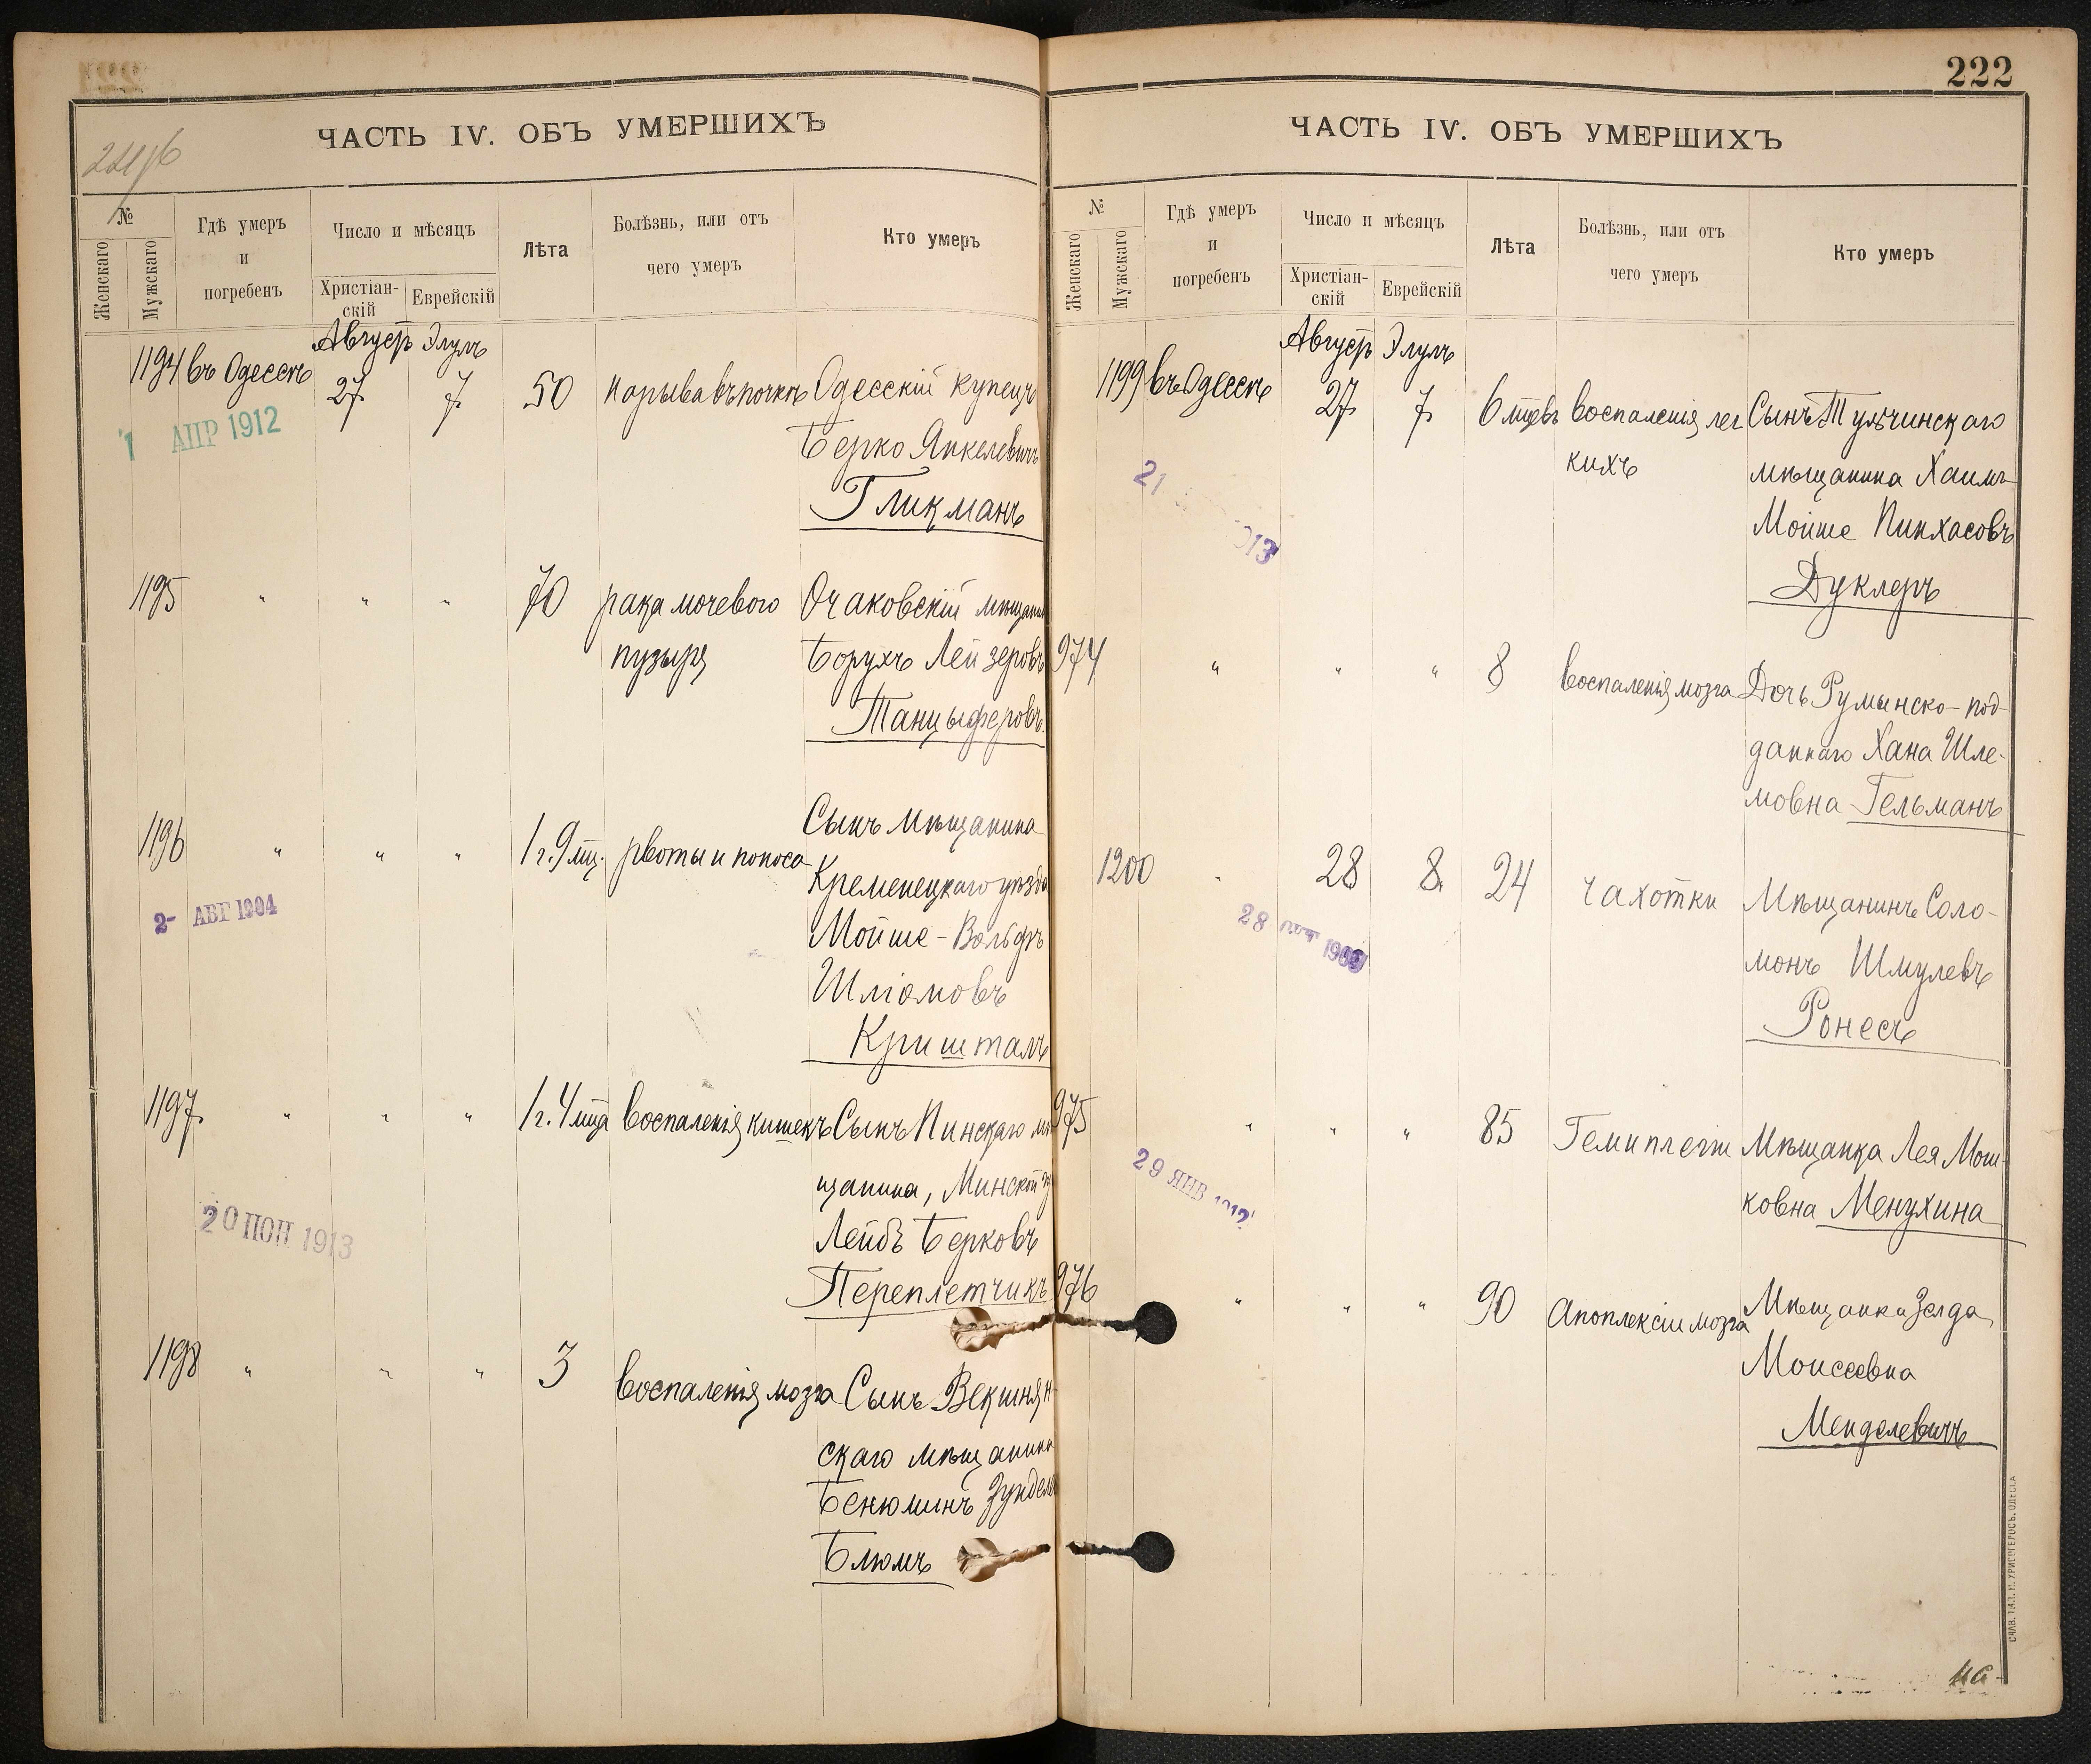 ЧАСТЬ IV. ОБЪ УМЕРШИХЪ
№
Женскаго
Мужскаго
Гдѣ умеръ
и
погребенъ
Число и мѣсяцъ
Христіан-
скій
Еврейскій
Лѣта
Болѣзнь, или отъ
чего умеръ
Кто умеръ
Августъ Элулъ
1194 въ Одессѣ 27 7 50 нарыва въ почкѣ Одесскій купецъ
1 АПР 1912
Берко Янкелевичъ
Гликманъ
1195 " " " 70 рака мочевого Очаковскій мѣщанин
пузыря Борухъ Лейзеровъ
Танцыферовъ
1196 " " " 1 г. 9 мц. рвоты и поноса Сынъ мѣщанина
Кременецкаго уѣзда
2- АВГ 1904
Мойше-Вольфъ
Шліомовъ
Кришталъ
1197 " " " 1 г. 4 мца воспаленія кишекъ Сынъ Пинскаго мѣ
щанина, Минской гу
20 1913
Лейбъ Берковъ
Переплетчикъ
1198 " " " 3 воспаленія мозга Сынъ Векшнян
скаго мѣщанина
Бенюминъ Зундел
Блюмъ
222
ЧАСТЬ IV. ОБЪ УМЕРШИХЪ
№
Женскаго
Мужскаго
Гдѣ умеръ
и
погребенъ
Число и мѣсяцъ
Христіан-
скій
Еврейскій
Лѣта
Болѣзнь, или отъ
чего умеръ
Кто умеръ
Августъ Элулъ
1199 въ Одессѣ 27 7 6 мцевъ воспаленія лег Сынъ Тульчинскаго
кихъ мѣщанина Хаимъ
21
Мойше Пинхасовъ
Дуклеръ
974 " " " 8 воспаленія мозга Дочь Румынско-под-
даннаго Хана Шле-
мовна Гельманъ
1200 " 28 8 24 чахотки Мѣщанинъ Соло-
28
монъ Шмулевъ
Ронесъ
975 " " " 85 Гемиплегіи Мѣщанка Лея Мош-
29 ЯНВ 1912
ковна Менухина
976 " " " 90 Апоплексіи мозга Мѣщанка Зелда
Моисеевна
Менделевичъ